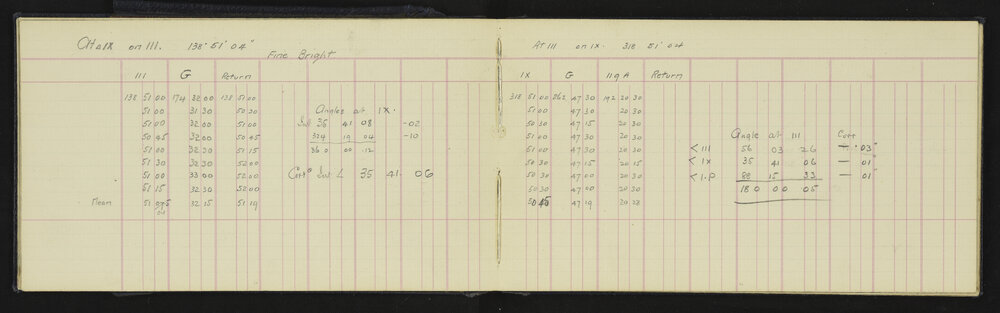 At IX on III. 138° 51' 04"
Fine Bright
III G Return
138 51 00 174 32 00 138 51 00
51 00 31 30 50 30
51 00 32 00 51 00
50 45 32 00 50 45
51 00 32 30 51 15
51 30 32 30 52 00
51 00 33 00 52 00
51 15 32 30 52 00
Mean 51 07.5 32 15 51 19
04
Angles at IX.
Int 35 41 08 -02
324 19 04 -10
360 00 12
Corr^d Int L 35 41 06
At III on IX. 318 51 04
IX G Return
318 51 00 262 47 30 192 20 30
51 00 47 30 20 30
51 00 47 15 20 30
51 00 47 30 20 30
51 00 47 30 20 30
50 30 47 15 20 15
50 30 47 00 20 30
50 30 47 00 20 30
50 45 47 19 20 28
Angle at III Corr
< III 56 03 26 - 03"
< IX 35 41 06 - 01"
< 1.P 88 15 33 - 01"
180 00 05